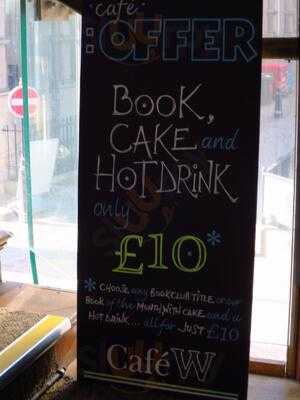 café
: OFFER
BOOK,
CAKE and
HOT DRINK
only
£10*
* CHOOSE any BOOKCLUB TITLE or our
BOOK of the MONTH WITH CAKE and a
HOT DRINK... all for JUST £10
Café W